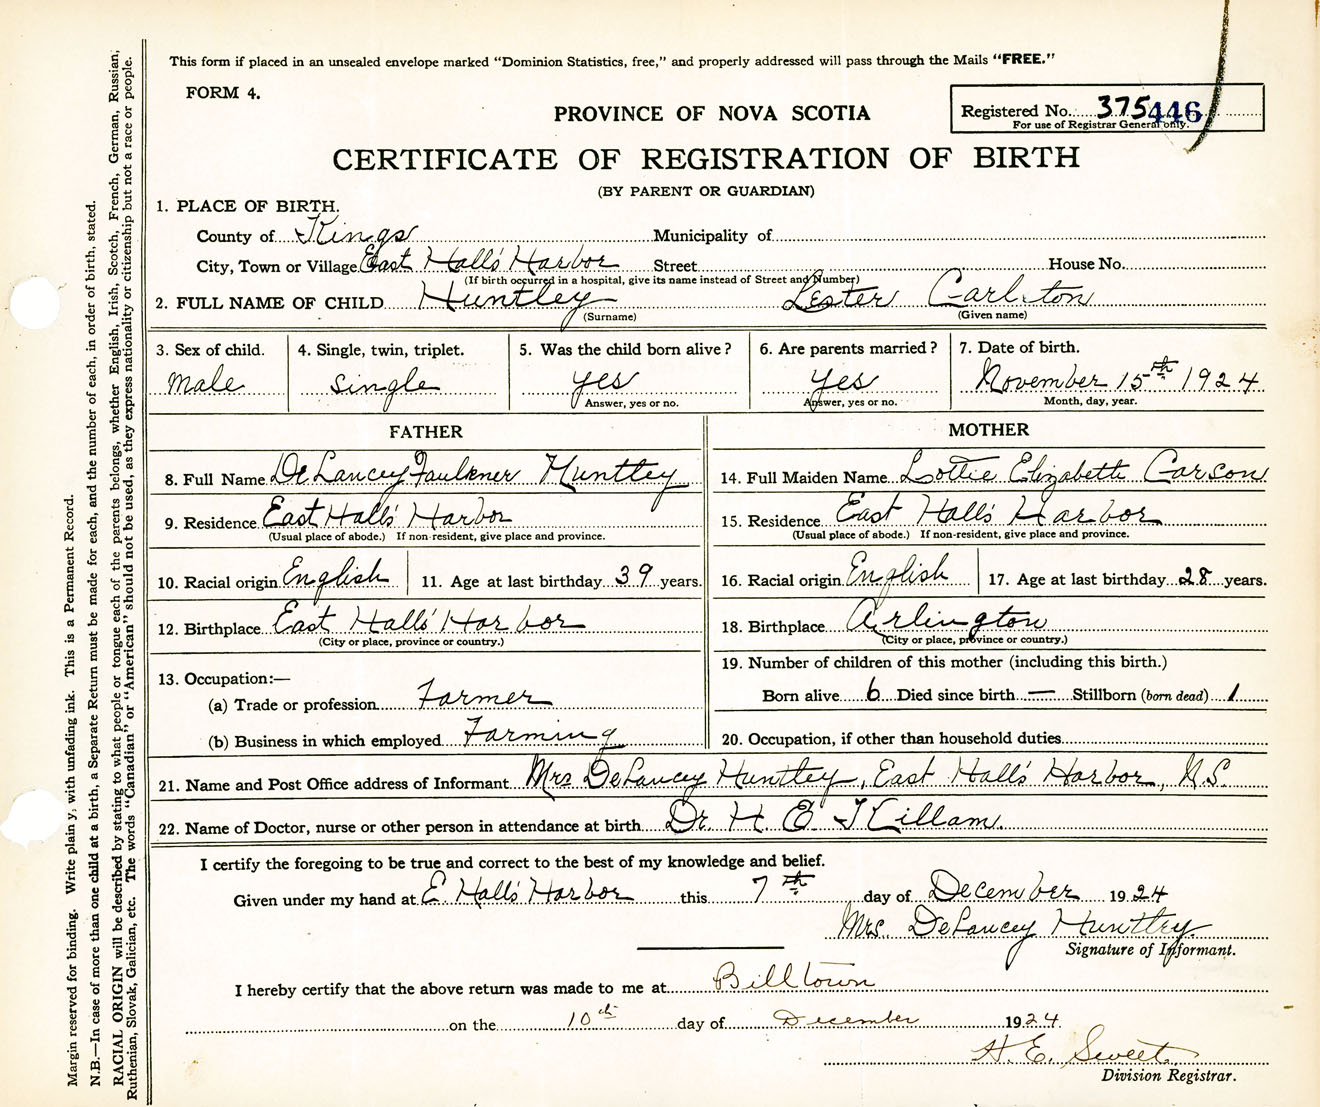 This form if placed in an unsealed envelope marked "Dominion Statistics, free," and properly addressed will pass through the Mails "FREE."
FORM 4.
PROVINCE OF NOVA SCOTIA
Registered No. 375 446
For use of Registrar General only.
CERTIFICATE OF REGISTRATION OF BIRTH
(BY PARENT OR GUARDIAN)
1. PLACE OF BIRTH.
County of Kings Municipality of
City, Town or Village East Hall's Harbor Street House No.
(If birth occurred in a hospital, give its name instead of Street and Number)
2. FULL NAME OF CHILD Huntley Lester Carleton
(Surname) (Given name)
3. Sex of child. 4. Single, twin, triplet. 5. Was the child born alive? 6. Are parents married? 7. Date of birth.
Male Single Yes Yes November 15th 1924
Answer, yes or no. Answer, yes or no. Month, day, year.
FATHER MOTHER
8. Full Name DeLancey Faulkner Huntley 14. Full Maiden Name Lottie Elizabeth Carson
9. Residence East Hall's Harbor 15. Residence East Hall's Harbor
(Usual place of abode.) If non-resident, give place and province. (Usual place of abode.) If non-resident, give place and province.
10. Racial origin English 11. Age at last birthday 39 years. 16. Racial origin English 17. Age at last birthday 28 years.
12. Birthplace East Hall's Harbor 18. Birthplace Arlington
(City or place, province or country.) (City or place, province or country.)
13. Occupation:— 19. Number of children of this mother (including this birth.)
(a) Trade or profession Farmer Born alive 6 Died since birth — Stillborn (born dead) 1
(b) Business in which employed Farming 20. Occupation, if other than household duties
21. Name and Post Office address of Informant Mrs DeLancey Huntley, East Hall's Harbor, N.S.
22. Name of Doctor, nurse or other person in attendance at birth Dr. H E Killam.
I certify the foregoing to be true and correct to the best of my knowledge and belief.
Given under my hand at E Hall's Harbor this 7th day of December 1924
Mrs. DeLancey Huntley
Signature of Informant.
I hereby certify that the above return was made to me at Billtown
on the 10th day of December 1924
H. E. Sweet
Division Registrar.
Margin reserved for binding. Write plain y, with unfading ink. This is a Permanent Record.
N.B.—In case of more than one child at a birth, a Separate Return must be made for each, and the number of each, in order of birth, stated.
RACIAL ORIGIN will be described by stating to what people or tongue each of the parents belongs, whether English, Irish, Scotch, French, German, Russian,
Ruthenian, Slovak, Galician, etc. The words "Canadian" or "American" should not be used, as they express nationality or citizenship but not a race or people.